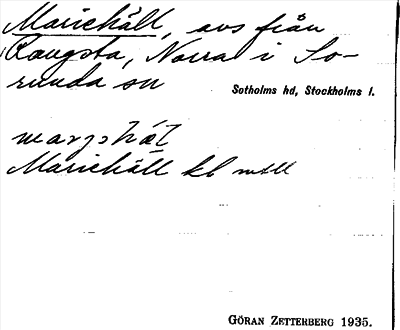 Mariehäll, avs från
Rangsta, Norra i So-
runda sn
Sotholms hd, Stockholms l.
Mariehäll kl
GÖRAN ZETTERBERG 1935.